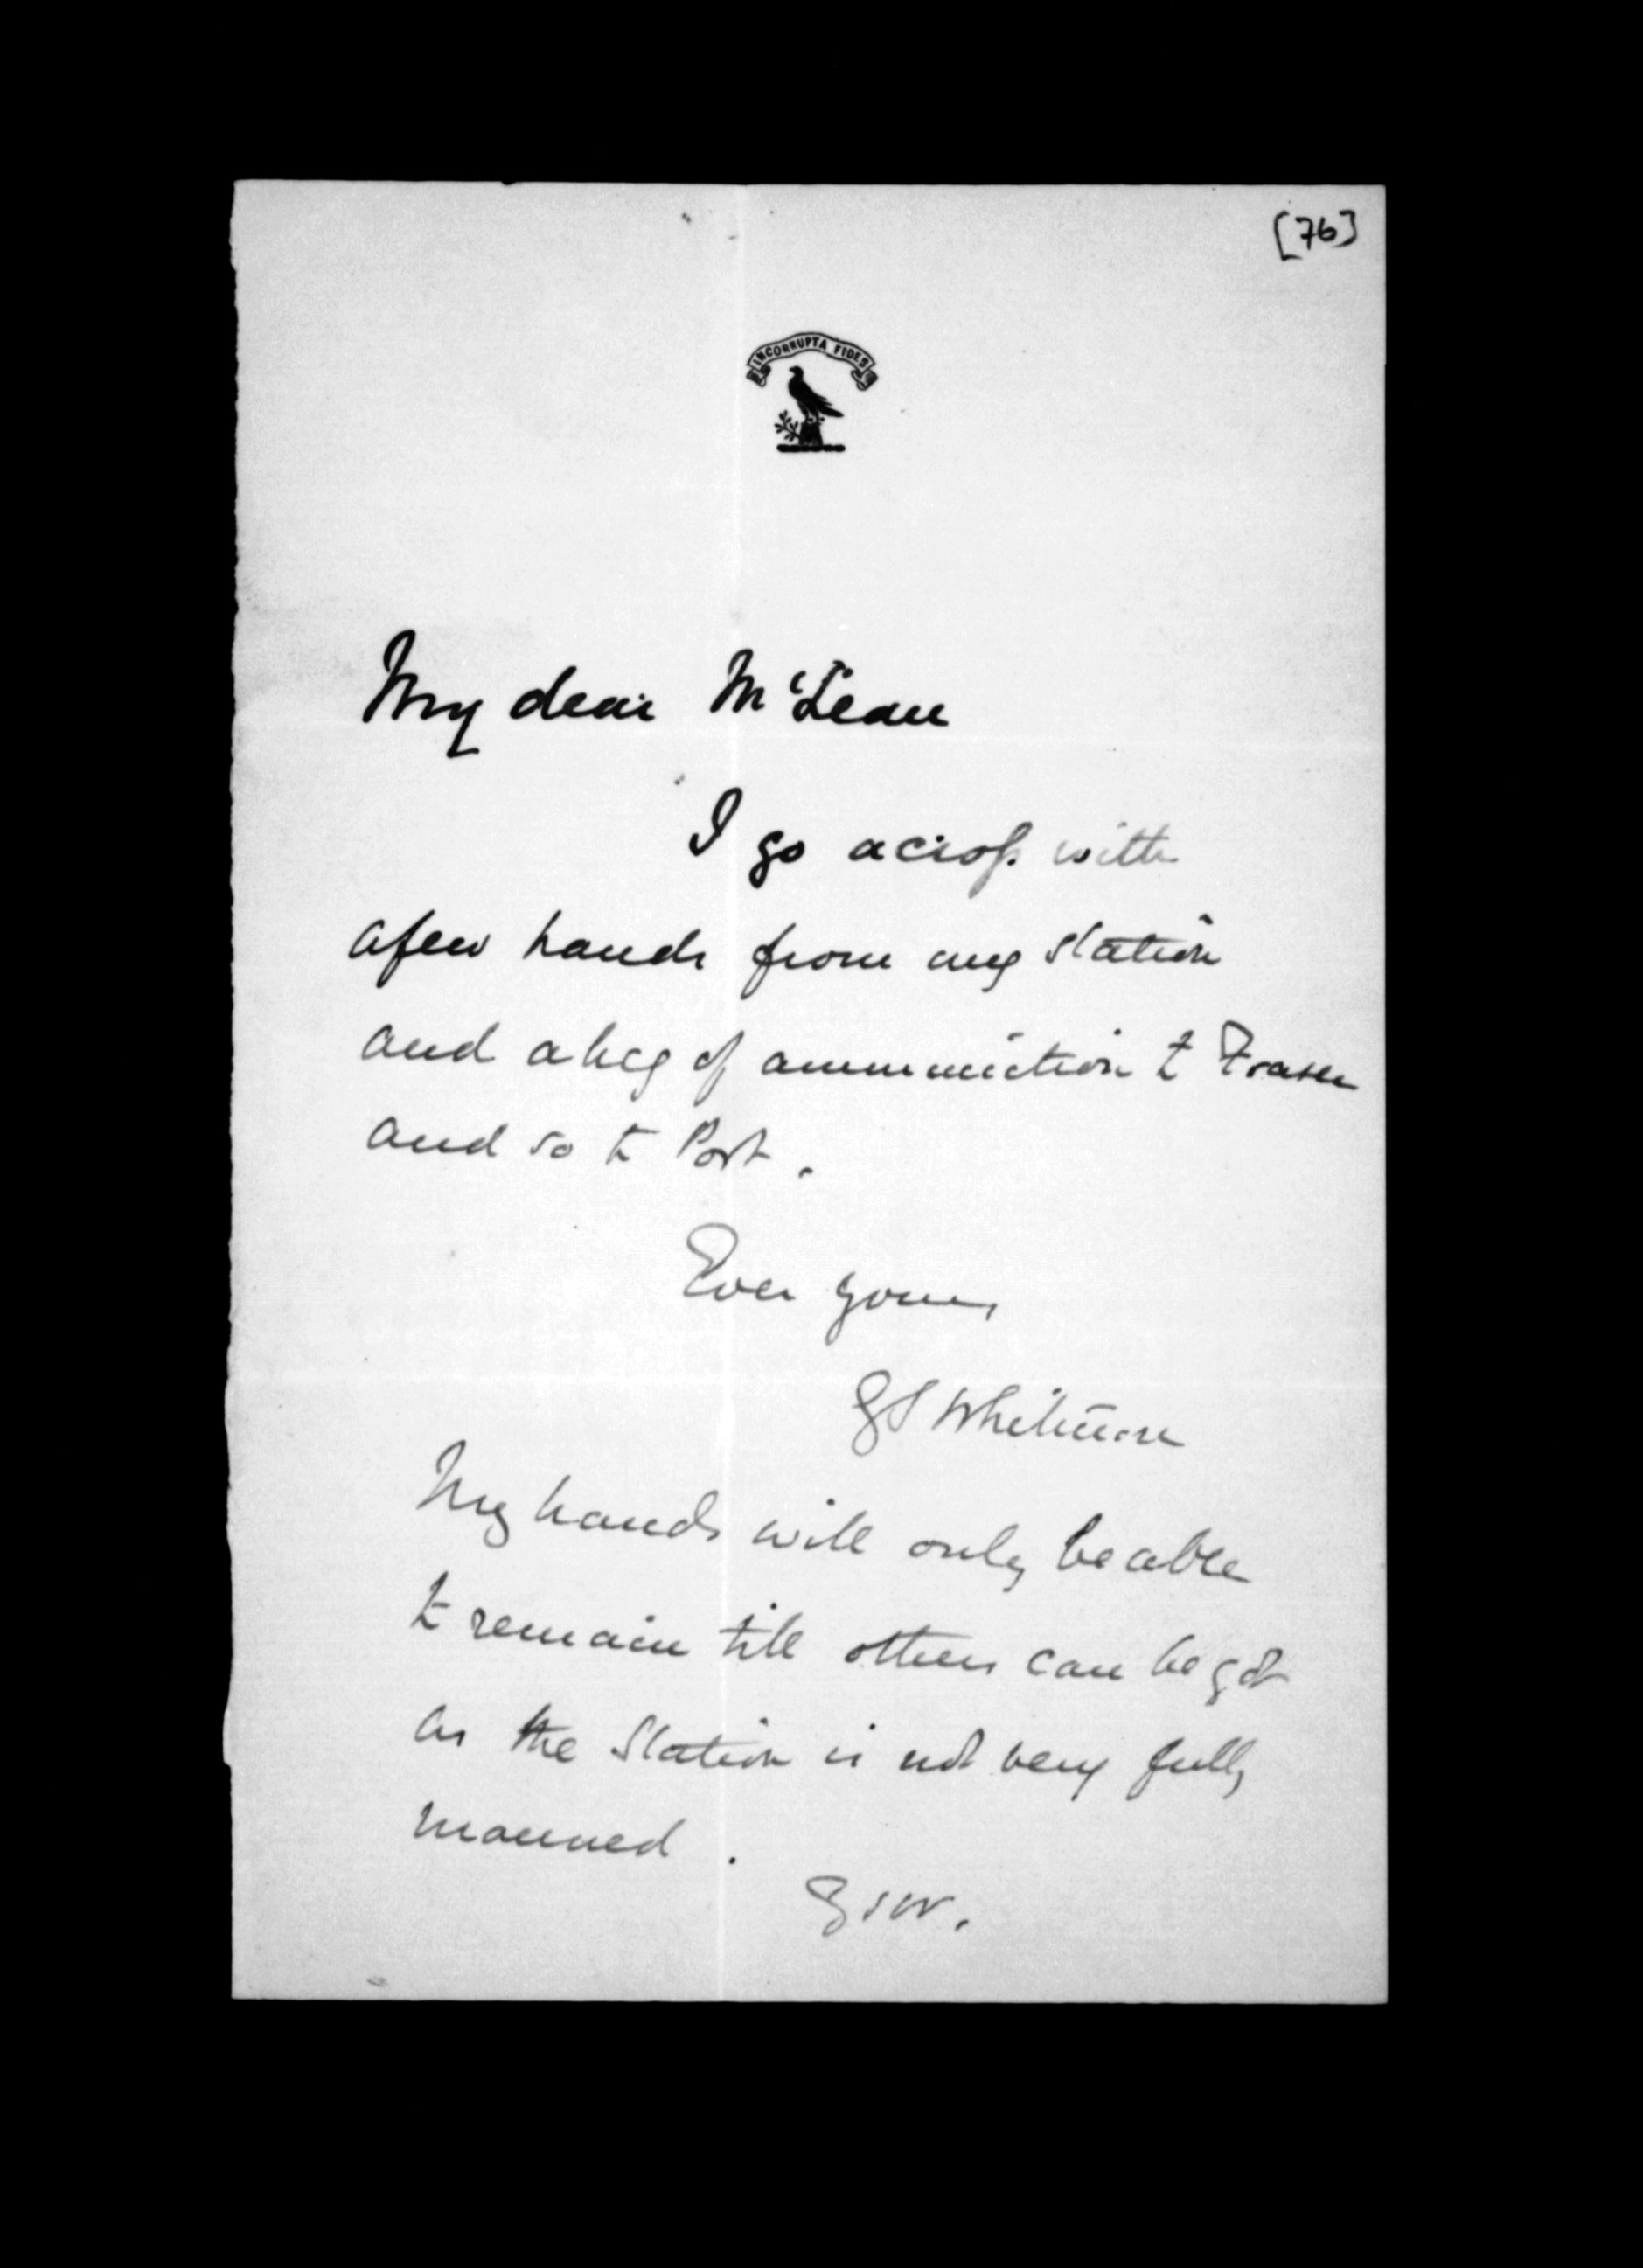 [76]
INCORRUPTA FIDES
My dear McLean
I go across with
a few hands from my station
and a keg of ammunition to Fraser
and so to Post.
Ever yours
GS Whitmore
My hands will only be able
to remain till others can be got
as the Station is not very fully
manned.
GSW.